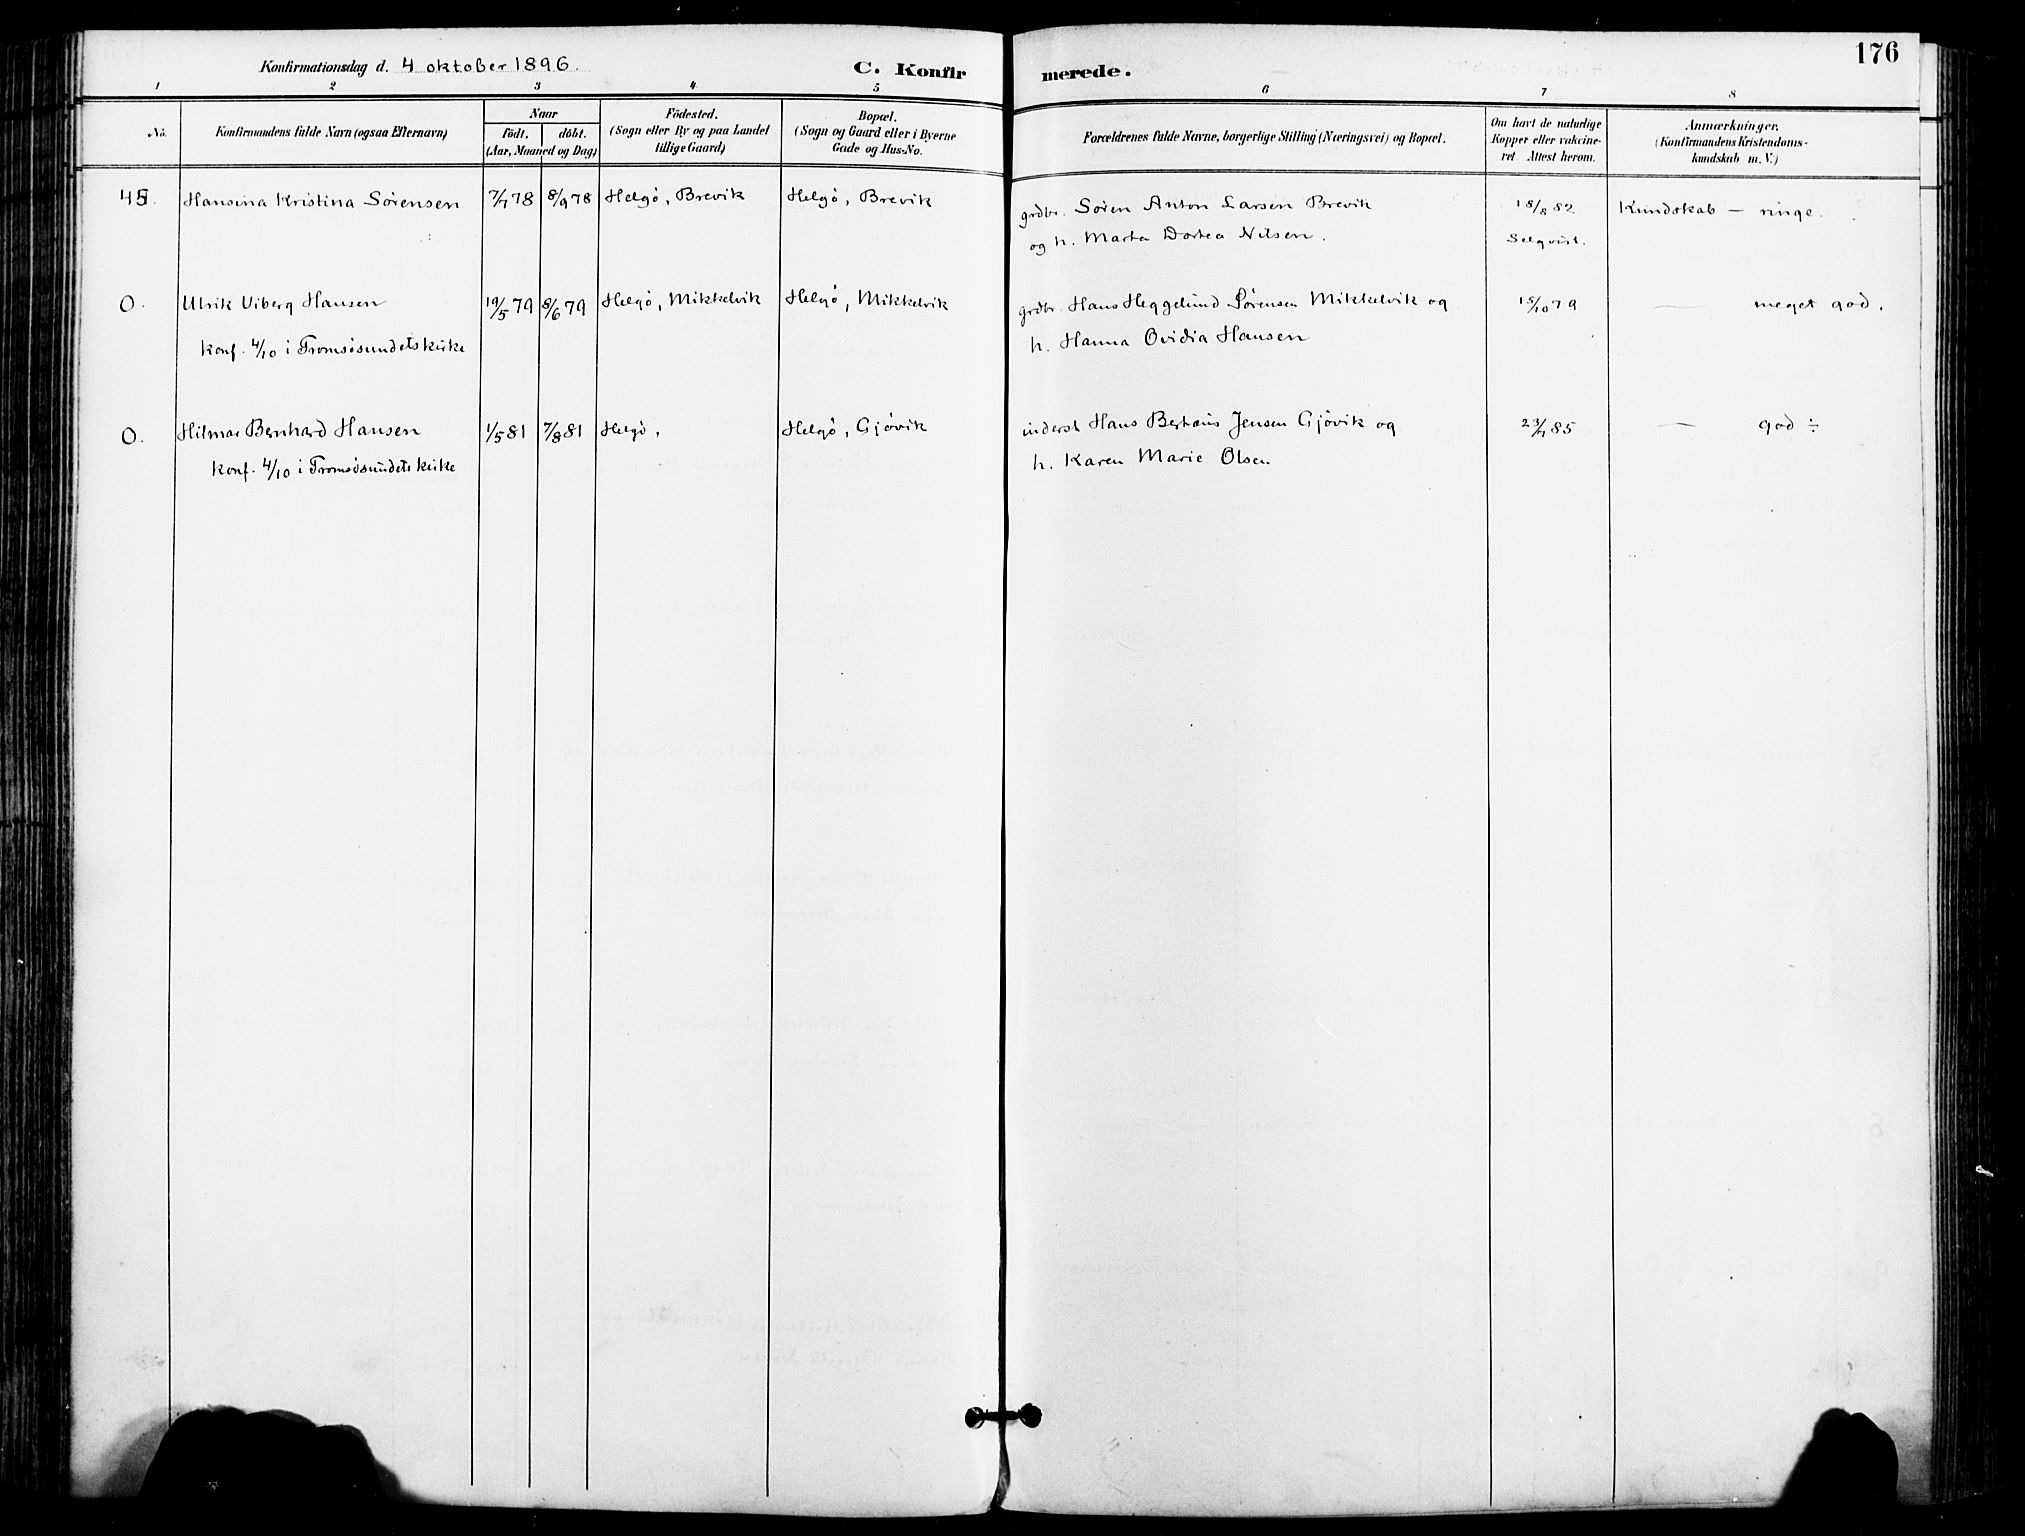 176
Konfirmationsdag d. 4 oktober 1896. C. Konfirmerede.
1 2 3 4 5 6 7 8
No. Konfirmandens fulde Navn (ogsaa Efternavn) Naar födt. döbt. (Aar, Maaned og Dag) Födested. (Sogn eller By og paa Landet tillige Gaard) Bopæl. (Sogn og Gaard eller i Byerne Gade og Hus-No. Forældrenes fulde Navne, borgerlige Stilling (Næringsvei) og Bopæl. Om havt de naturlige Kopper eller vakcineret Attest herom. Anmærkninger. (Konfirmandens Kristendomskundskab m. V.)
45. Hansina Kristina Sörensen 7/7 78 8/9 78 Helgö, Brevik Helgö, Brevik grdbr. Sören Anton Larsen Brevik 18/8 82 Kundskab — ringe.
og h. Marta Dortea Nilsen. Selqvist.
0. Ulrik Viberg Hansen 19/5 79 8/6 79 Helgö, Mikkelvik Helgö, Mikkelvik grdbr. Hans Heggelund Sörensen Mikkelvik og 15/10 79 — meget god.
konf. 4/10 i Tromsösundets kirke h. Hanna Ovidia Hansen
0. Hilmar Bernhard Hansen 1/5 81 7/8 81 Helgö, Helgö, Gjövik inderst Hans Berteus Jensen Gjövik og 23/7 85 — god ÷
konf. 4/10 i Tromsösundets kirke h. Karen Marie Olsen